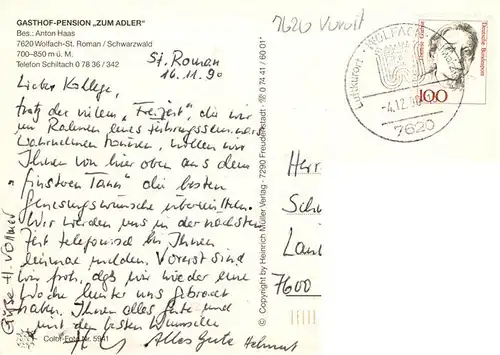 GASTHOF-PENSION „ZUM ADLER"
Bes.: Anton Haas
7620 Wolfach-St. Roman / Schwarzwald
700–850 m ü. M.
Telefon Schiltach 0 78 36 / 342
St. Roman
16.11.90
Lieber Kollege,
trotz der vielen „Freizeit", die wir
im Rahmen eines Führungsseminar
wahrnehmen können, wollen wir
Ihnen von hier oben aus dem
„finsteren Tann" die besten
Genesungswünsche übermitteln.
Wir werden uns in der nächsten
Zeit telefonisch bei Ihnen
einmal melden. Vorerst sind
wir froh, daß wir wieder eine
Woche hinter uns gebracht
haben. Ihnen alles Gute und
mit den besten Wünschen
Alles Gute Helmut
Grüße H. Vollmer
Color-Foto Nr. 5941
© Copyright by Heinrich Müller Verlag · 7290 Freudenstadt · ☎ 0 74 41 / 60 01
7620 Vorort
WOLFACH
Luftkurort
-4.12.90
7620
Deutsche Bundespost
100
Herr
Sch
Lan
7600